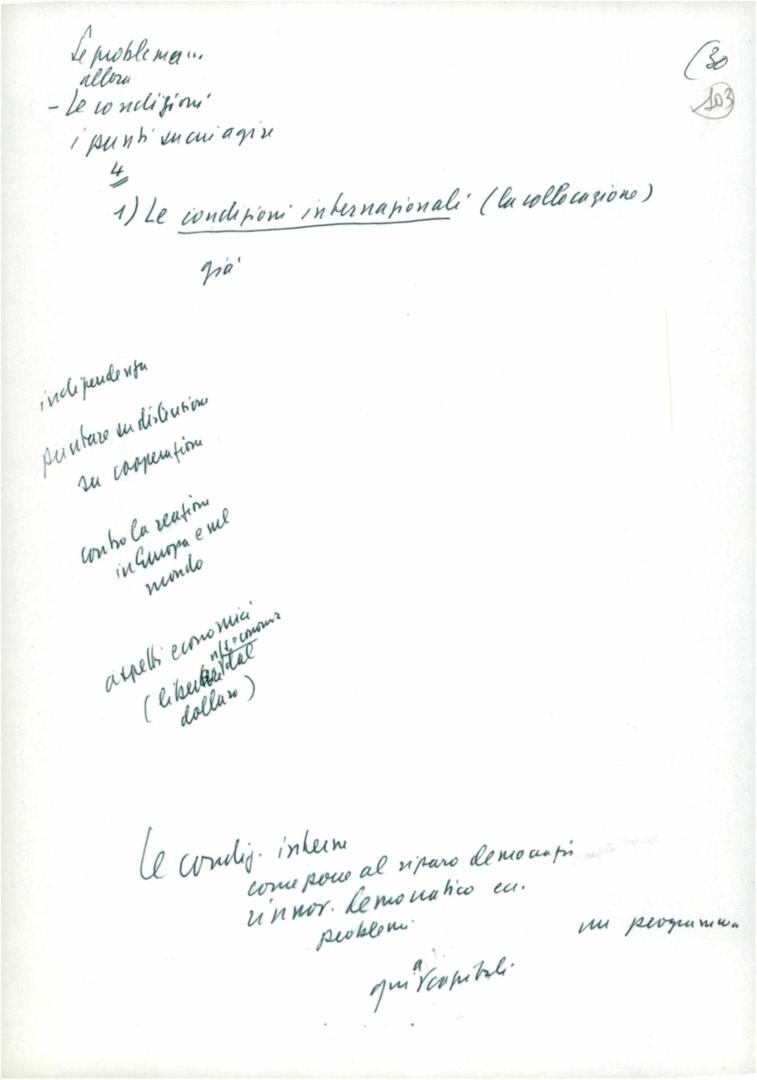 (30
103
Le problema...
allora
- Le condizioni
i punti su cui agire
4
1) Le condizioni internazionali (la collocazione)
già
indipendenza
puntare su distensione
su cooperazione
contro la reazione
in Europa e nel
mondo
aspetti economici
n/s. economia
dal
dollaro)
Le condiz. interne
come porre al riparo democrazia
rinnov. democratico ecc.
problemi
un programma
qui a capitoli